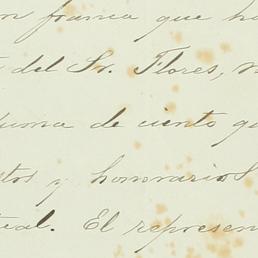 franca que ha
del Sr. Flores,
suma de ciento
y honorarios
El represen